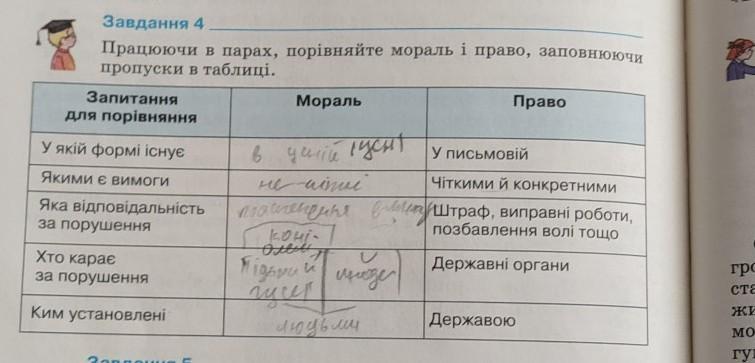 Завдання 4
Працюючи в парах, порівняйте мораль і право, заповнюючи
пропуски в таблиці.
Запитання
для порівняння
Мораль
Право
У якій формі існує
в усній
У письмовій
Якими є вимоги
не чіткі
Чіткими й конкретними
Яка відповідальність
за порушення
Штраф, виправні роботи,
позбавлення волі тощо
Хто карає
за порушення
люди
Державні органи
Ким установлені
людьми
Державою
Завдання 5
гро
ста
жи
мо
гул